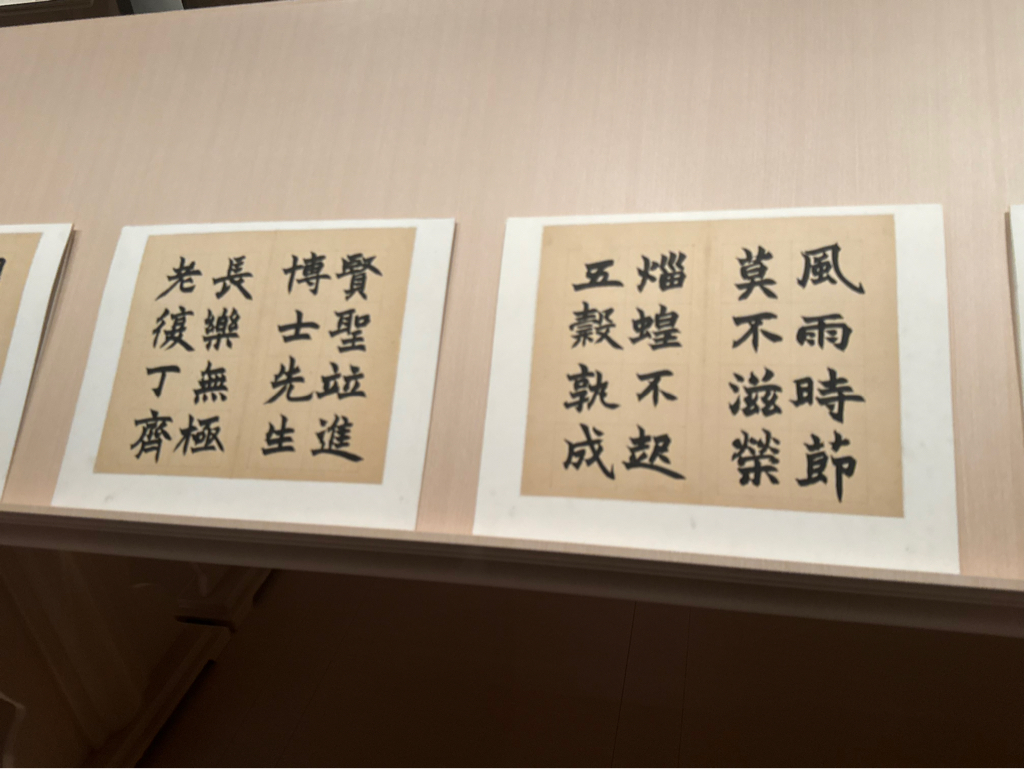 風雨時節
莫不滋榮
𤉣蝗不起
五穀孰成
賢聖竝進
博士先生
長樂無極
老復丁齊